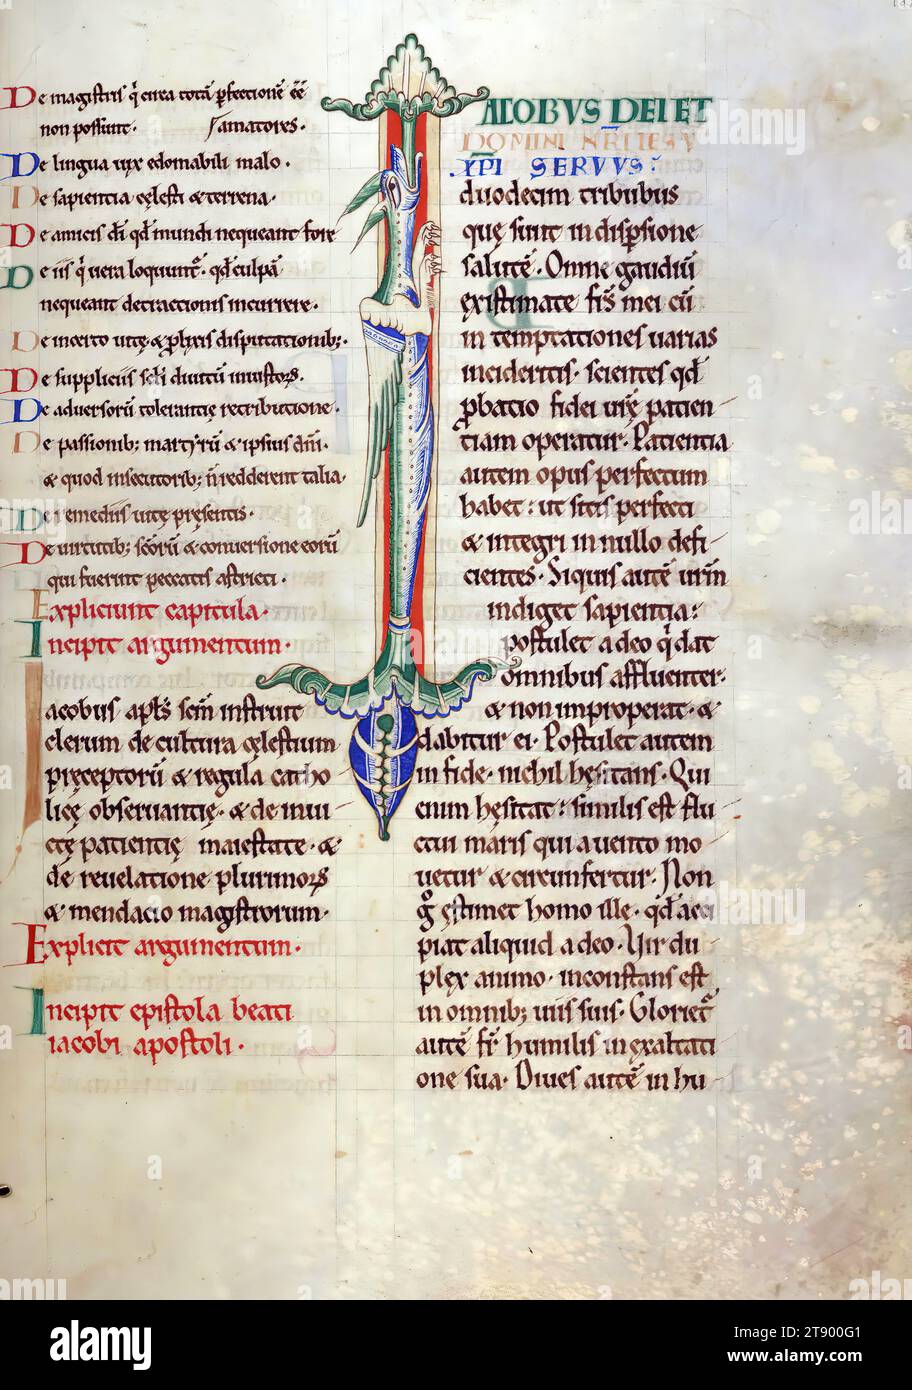 De magistris q̄ circa totā ꝑfectionē eē̄
non possunt. samatores.
De lingua uix edomabili malo.
De sapientia cęlesti & terrena.
De amicis di qd mundi nequeant fore
De iis q̄ uera loquunt̄. qd culpā
nequeant detractionis incurrere.
De incerto uitę & ꝓlixis disputationib;.
De suppliciis scli diuitū iniustorꝝ.
De aduersorū tolerantię retributione.
De passionib; martyrū & ipsius dm̄i.
& quod insecutorib; n̄ redderent talia.
De remediis uitę pręsentis.
De uirtutib; scōrū & conuersione eorū
qui fuerint peccatis astricti.
Expliciunt capitula.
Incipit argumentum.
Iacobus apls scm̄ instruit
clerum de cultura cęlestium
pręceptorū & regula catho
licę obseruantię. & de inui
ctę patientię maiestate. &
de reuelatione plurimorꝝ
& mendacio magistrorum.
Explicit argumentum.
Incipit epistola beati
iacobi apostoli.
IACOBVS DEI ET
DOMINI NRI IESV
XPI SERVVS.
duodecim tribubus
quę sunt in dispsione
salutē. Omne gaudiū
existimate frs̄ mei cū
in temptationes uarias
incideritis. scientes qd
ꝓbatio fidei urę̄ patien
tiam operatur. Patientia
autem opus perfectum
habet: ut sitis perfecti
& integri in nullo defi
cientes. Siquis autē urm̄
indiget sapientia:
postulet a deo q̄ dat
omnibus affluenter.
& non improperat. &
dabitur ei. Postulet autem
in fide. nichil hęsitans. Qui
enim hęsitat: similis est flu
ctui maris qui a uento mo
uetur & circumfertur. Non
g̊ ęstimet homo ille. qd acci
piat aliquid a deo. Uir du
plex animo. inconstans est
in omnib; uiis suis. Glorietr̄
autē fr̄ humilis in exaltati
one sua. Diues autē in hu
alamy
alamy
alamy
Image ID: 2T90OG1
www.alamy.com